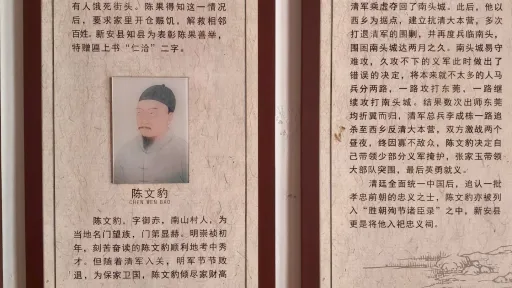 有人饿死街头。陈果得知这一情况
后，要求家里开仓赈饥，解救相邻
百姓。新安县知县为表彰陈果善举，
特赠匾上书“仁洽”二字。
陈文豹
CHEN WEN BAO
陈文豹，字御赤，南山村人，为
当地名门望族，门第显赫。明崇祯初
年，刻苦奋读的陈文豹顺利地考中秀
才。但随着清军入关，明军节节败
退，为保家卫国，陈文豹倾尽家财高
清军乘虚夺回了南头城。此后，他以
西乡为据点，建立抗清大本营，多次
打退清军的围剿，并再度兵临南头，
围困南头城达两月之久。南头城易守
难攻，久攻不下的义军此时做出了
错误的决定，将本来就不太多的人马
兵分两路，一路攻打东莞，一路继
续攻打南头城。结果数次出师东莞
均折翼而归，清军总兵李成栋一路追
杀至西乡反清大本营，双方激战两个
昼夜，终因寡不敌众，陈文豹决定自
己带领少部分义军掩护，张家玉带领
大部队突围，最后英勇就义。
清廷全面统一中国后，追认一批
孝忠前朝的忠义之士，陈文豹亦被列
入“胜朝殉节诸臣录”之中，新安县
更是将他入祀忠义祠。